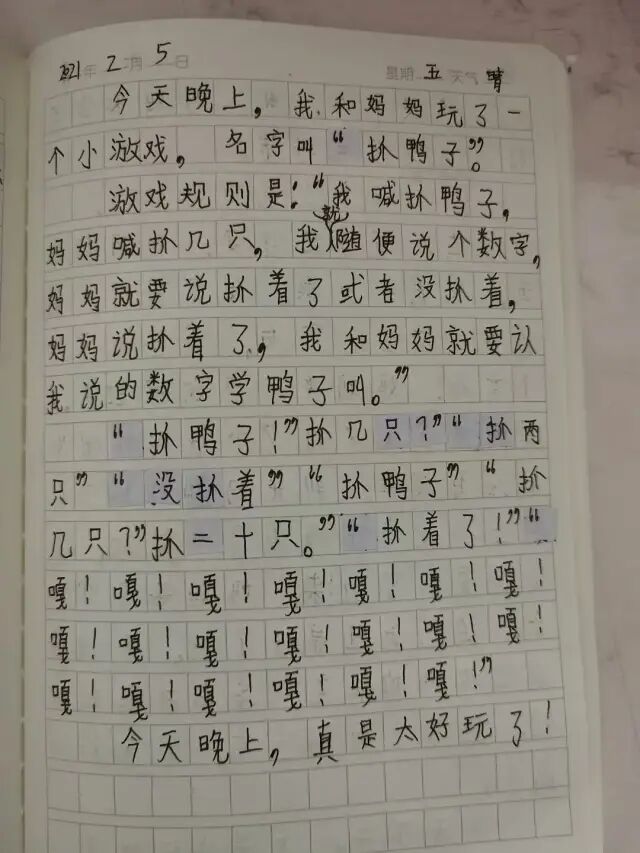 2021年2月5日 星期五 天气晴
今天晚上，我和妈妈玩了一
个小游戏，名字叫“抓鸭子”。
游戏规则是：“我喊抓鸭子，
妈妈喊抓几只，我就随便说个数字，
妈妈就要说抓着了或者没抓着，
妈妈说抓着了，我和妈妈就要认
我说的数字学鸭子叫。”
“抓鸭子！”抓几只？”“抓两
只”“没抓着”“抓鸭子”“抓
几只？”抓二十只。”“抓着了！”“
嘎！嘎！嘎！嘎！嘎！嘎！嘎！
嘎！嘎！嘎！嘎！嘎！嘎！嘎！
嘎！嘎！嘎！嘎！嘎！嘎！”
今天晚上，真是太好玩了！